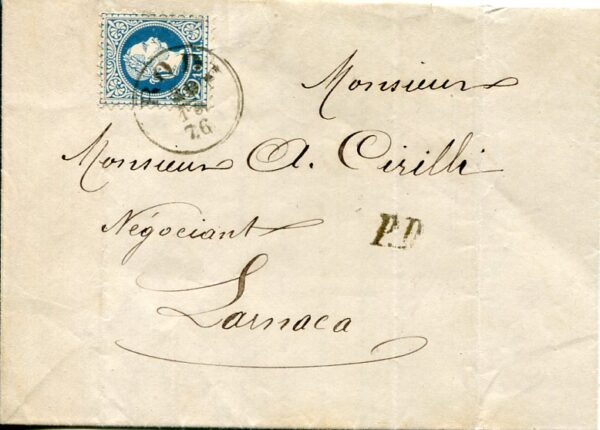 Monsieur
Monsieur A. Cirilli
Négociant
Larnaca
P.D
76